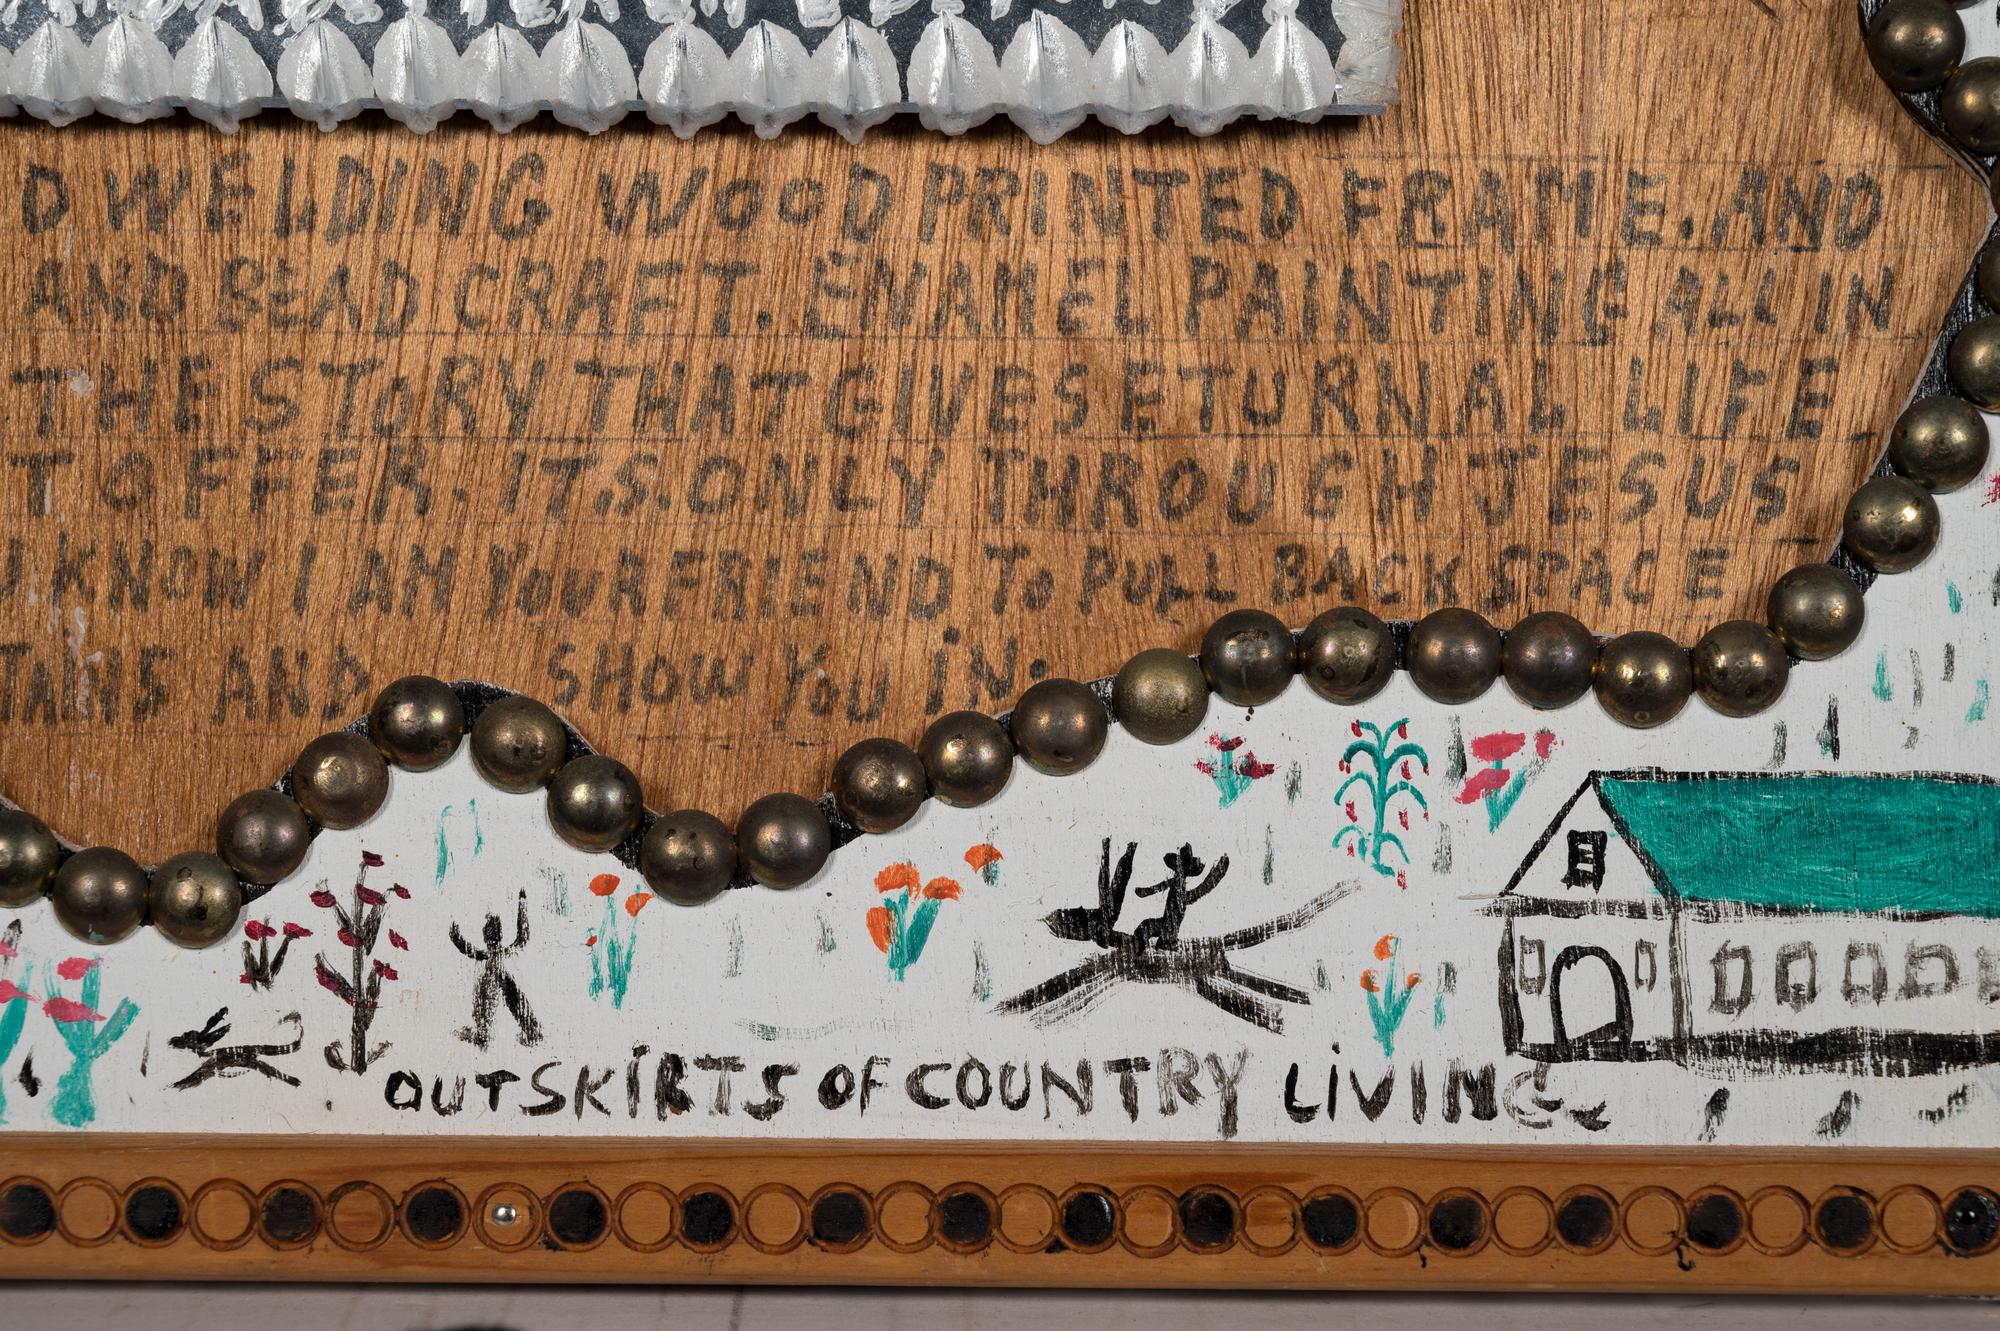 D WELDING WOOD PRINTED FRAME. AND
AND BEAD CRAFT. ENAMEL PAINTING ALL IN
THE STORY THAT GIVES ETURNAL LIFE
T OFFER. IT.S. ONLY THROUGH JESUS
U KNOW I AM YOUR FRIEND TO PULL BACK SPACE
TAINS AND SHOW YOU IN.
OUTSKIRTS OF COUNTRY LIVING